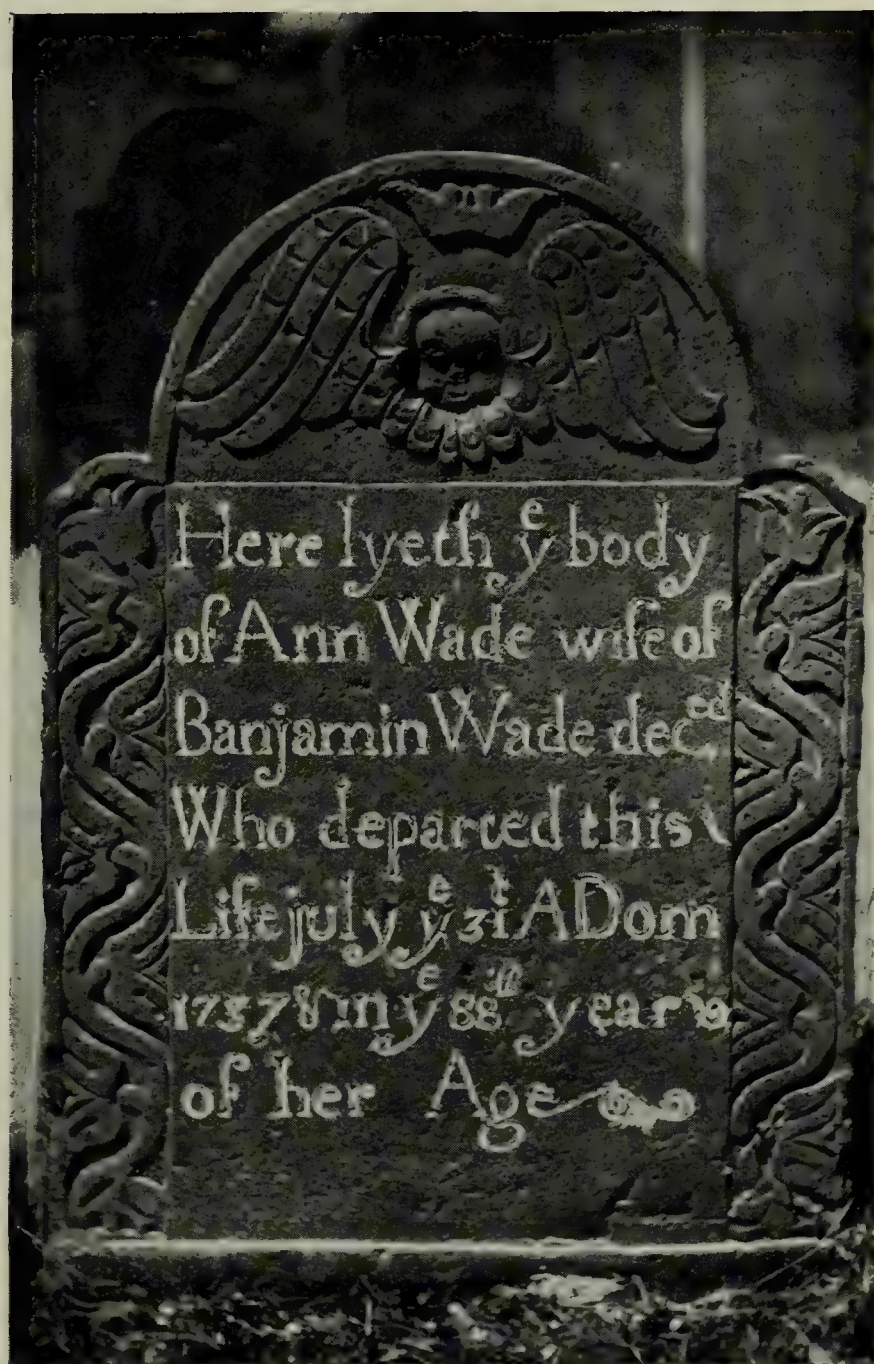 Here lyeth yᵉ body
of Ann Wade wife of
Banjamin Wade decᵉᵈ
Who departed this
Life july yᵉ 31ᵗ A Dom
1737 & in yᵉ 88ᵗʰ year
of her Age